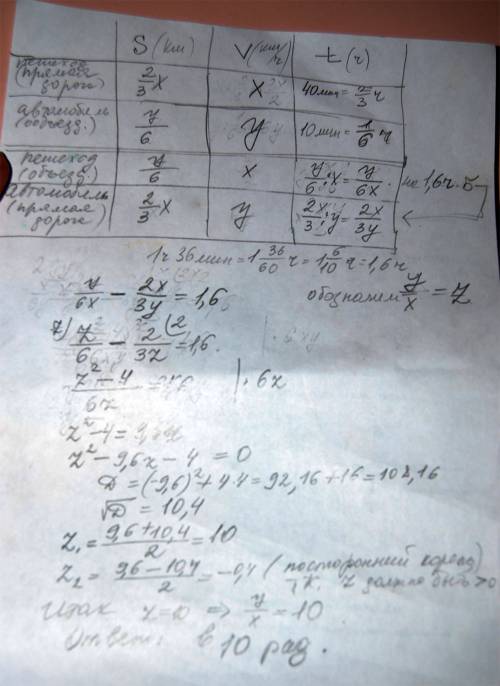 S (км) V (км/ч) t (ч)
пешеход (прямая дорога) 2/3 x x 40 мин = 2/3 ч
автомобиль (объезд.) y/6 y 10 мин = 1/6 ч
пешеход (объезд.) y/6 x y/6 : x = y/6x на 1,6 ч. Б
автомобиль (прямая дорога) 2/3 x y 2x/3 : y = 2x/3y
1 ч 36 мин = 1 36/60 ч = 1 6/10 ч = 1,6 ч
y/6x − 2x/3y = 1,6 обозначим y/x = z
z/6 − 2/3z = 1,6
z² − 4 / 6z | · 6z
z² − 4 = 9,6z
z² − 9,6z − 4 = 0
D = (−9,6)² + 4·4 = 92,16 + 16 = 108,16
√D = 10,4
z₁ = 9,6 + 10,4 / 2 = 10
z₂ = 9,6 − 10,4 / 2 = −0,4 (посторонний корень)
т.к. z должно быть > 0
Итак z = 10 => y/x = 10
Ответ: в 10 раз.